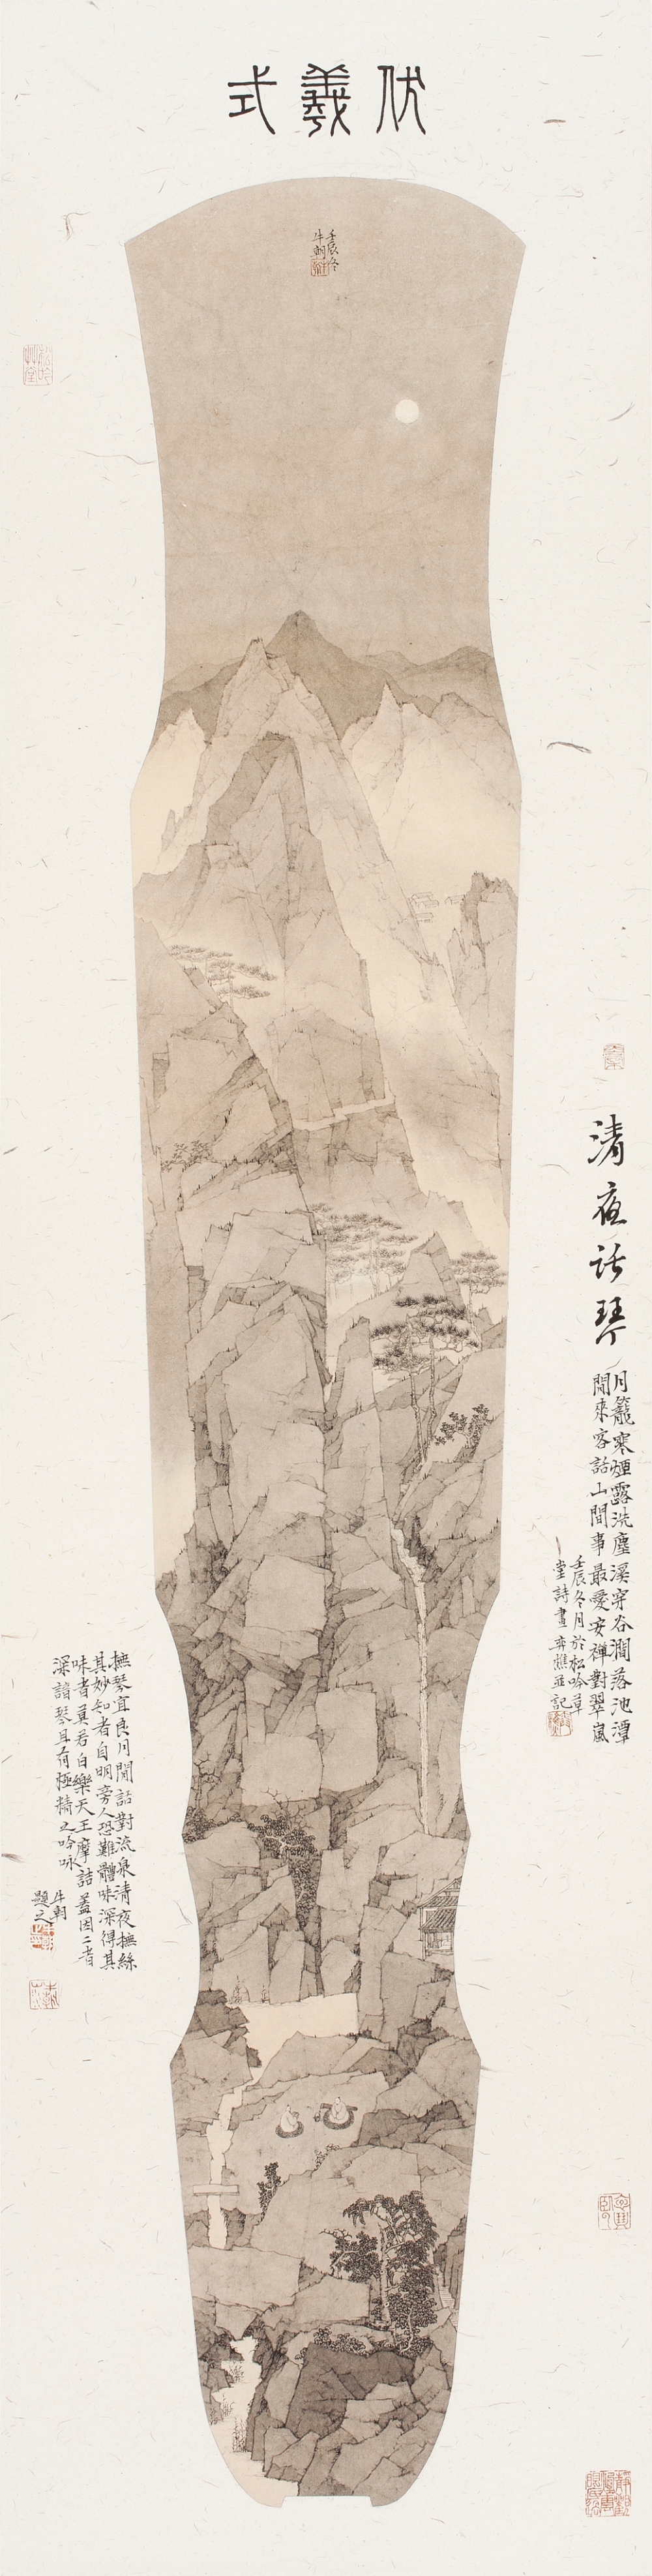 伏羲式
壬辰冬
牛朝
清夜話琴
月籠寒煙露洗塵溪穿谷澗落池潭
閒來客話山間事最愛安禪對翠嵐
壬辰冬月於松吟草
堂詩畫弈樵並記
撫琴宜良月閒話對流泉清夜撫絲
其妙知者自明旁人恐難體味深得其
味者莫若白樂天王摩詰蓋因二者
深諳琴且有極精之吟咏
牛朝
題之